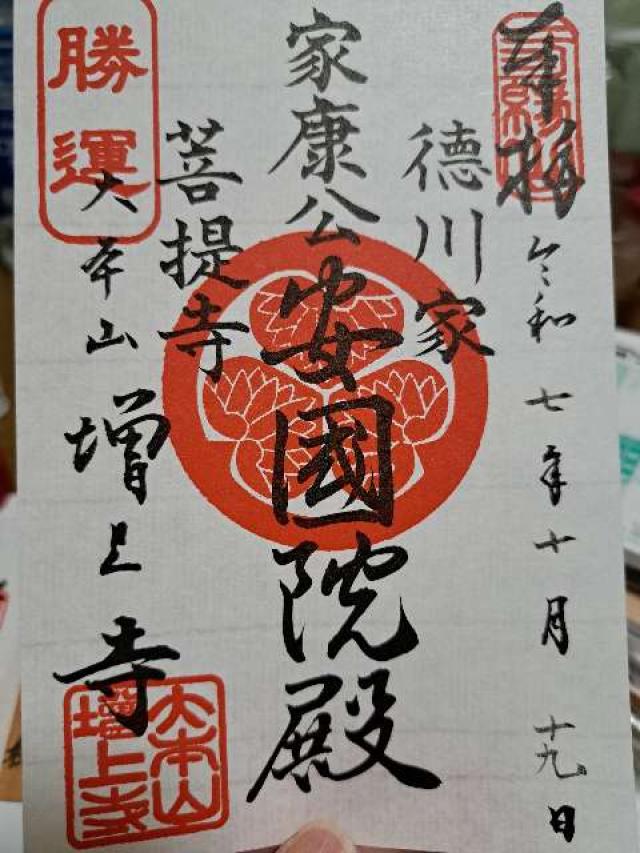 奉拝
令和七年十月十九日
徳川家
家康公
安國院殿
菩提寺
勝運
大本山
増上寺
大本山
増上寺